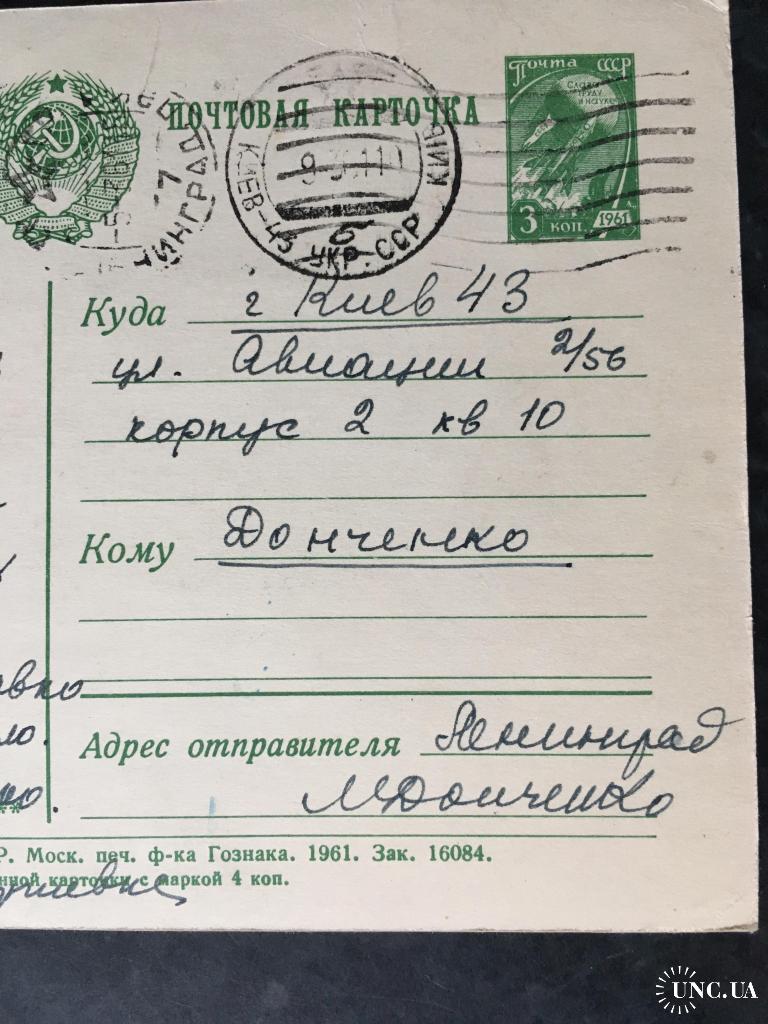 ПОЧТОВАЯ КАРТОЧКА
Почта СССР
СЛАВА
ТРУДУ
И НАУКЕ
3
КОП
1961
КИЕВ-43 УКР. ССР КИЇВ
б
Куда г Киев 43
ул. Авиации 2/56
корпус 2 кв 10
Кому Донченко
Адрес отправителя Ленинград
МДонченко
Р. Моск. печ. ф-ка Гознака. 1961. Зак. 16084.
нной карточки с маркой 4 коп.
UNC.UA